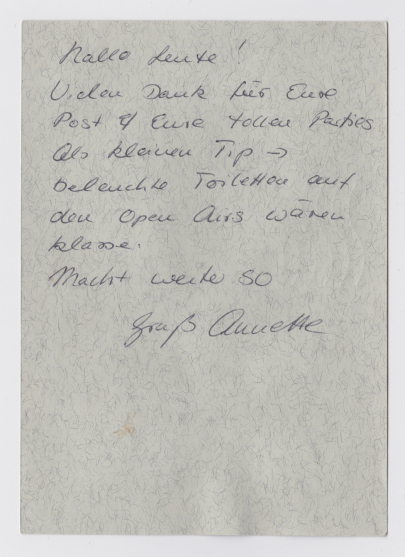 Hallo Leute!
Vielen Dank für Eure
Post & Eure tollen Parties
Als kleinen Tip →
beleuchte Toiletten auf
den Open Airs wären
klasse.
Macht weiter so
Gruß Annette